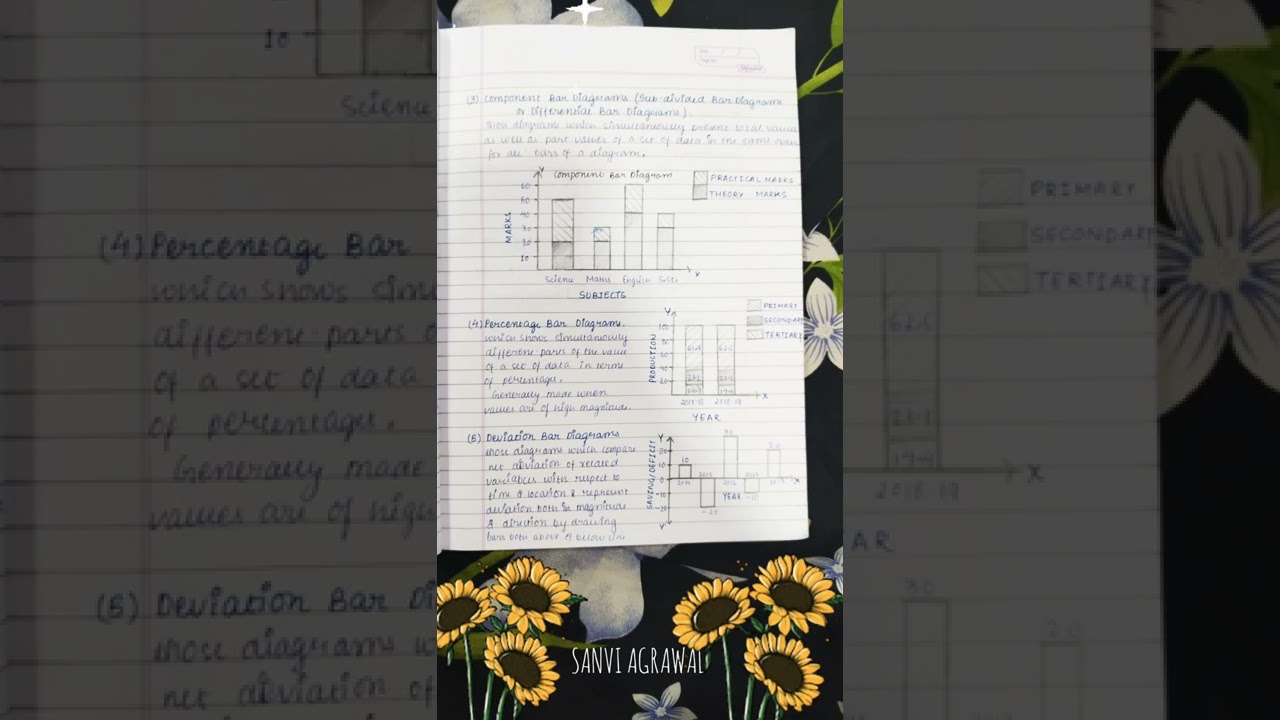 (3) Component Bar Diagrams (Sub-divided Bar Diagrams
or Differential Bar Diagrams).
diagrams which simultaneously present total values
as well as part values of a set of data in the same order
for all bars of a diagram.
Y Component Bar Diagram
PRACTICAL MARKS
THEORY MARKS
MARKS
60
50
40
30
20
10
Science Maths English X
SUBJECTS
(4) Percentage Bar Diagrams.
which shows simultaneously
different parts of the value
of a set of data in terms
of percentage.
Generally made when
values are of high magnitude.
PRIMARY
SECONDARY
TERTIARY
Y
PRODUCTION
100
80
60
40
20
62.6
19.4
2017-18 2018-19 X
YEAR
(5) Deviation Bar Diagrams
those diagrams which compare
net deviation of related
variables with respect to
time & location & represent
deviation both in magnitude
& direction by drawing
bars both above & below
SAVING/DEFICIT
Y
20
10
0
10 30 20
2014 2015 2016
YEAR X
-20 -10
Y'
SANVI AGRAWAL
10
Science
(4) Percentage Bar
which shows
different parts
of a set of data
of percentage.
Generally made
values are of high
(5) Deviation Bar
those diagrams
net deviation of
PRIMARY
SECONDARY
TERTIARY
62.6
19.4
2018-19
X
30
20